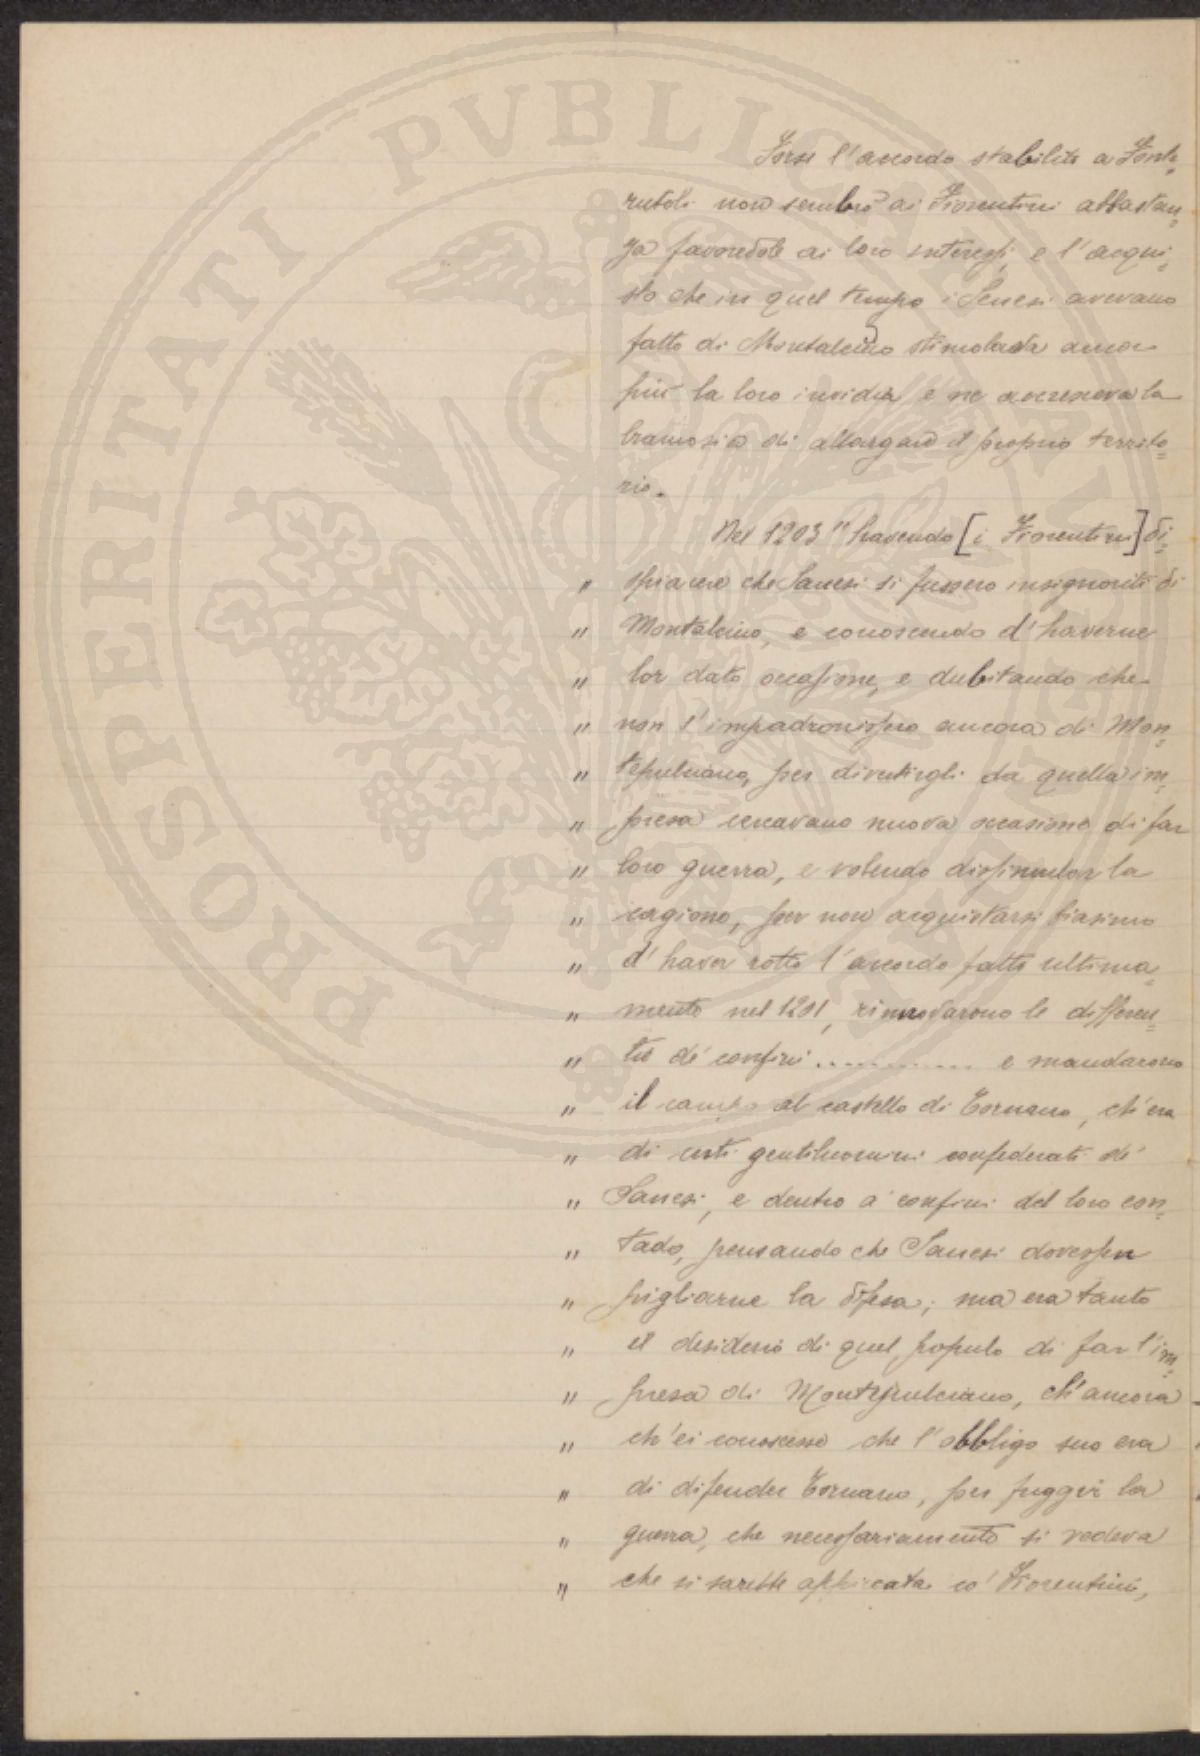 PROSPERITATI PVBLICAE
Forse l'accordo stabilito a Fonte=
rutoli non sembrò ai Fiorentini abbastan=
za favorevole ai loro interessi, e l'acqui=
sto che in quel tempo i Senesi avevano
fatto di Montalcino stimolava ancor
più la loro invidia e ne accresceva la
bramosia di allargare il proprio territo=
rio.
Nel 1203 "havendo [i Fiorentini] di=
" spiacere che Sanesi si fussero insignoriti di
" Montalcino, e conoscendo d'haverne
" lor dato occasione, e dubitando che
" non s'impadronissero ancora di Mon=
" tepulciano, per divertirgli da quella im=
" presa cercavano nuova occasione di far
" loro guerra, e volendo dissimular la
" cagione, per non acquistarsi biasimo
" d'haver rotto l'accordo fatto ultima=
" mente nel 1201, rinnovarono le differen=
" tie de' confini ............ e mandarono
" il campo al castello di Tornano, ch'era
" di certi gentiluomini confederati de'
" Sanesi, e dentro a' confini del loro con=
" tado, pensando che Sanesi dovesser
" pigliarne la difesa; ma era tanto
" il desiderio di quel popolo di far l'im=
" presa di Montepulciano, ch'ancora
" ch'ei conoscesse che l'obbligo suo era
" di difender Tornano, per fuggir la
" guerra, che necessariamente si vedeva
" che si sarebbe appiccata co' Fiorentini,